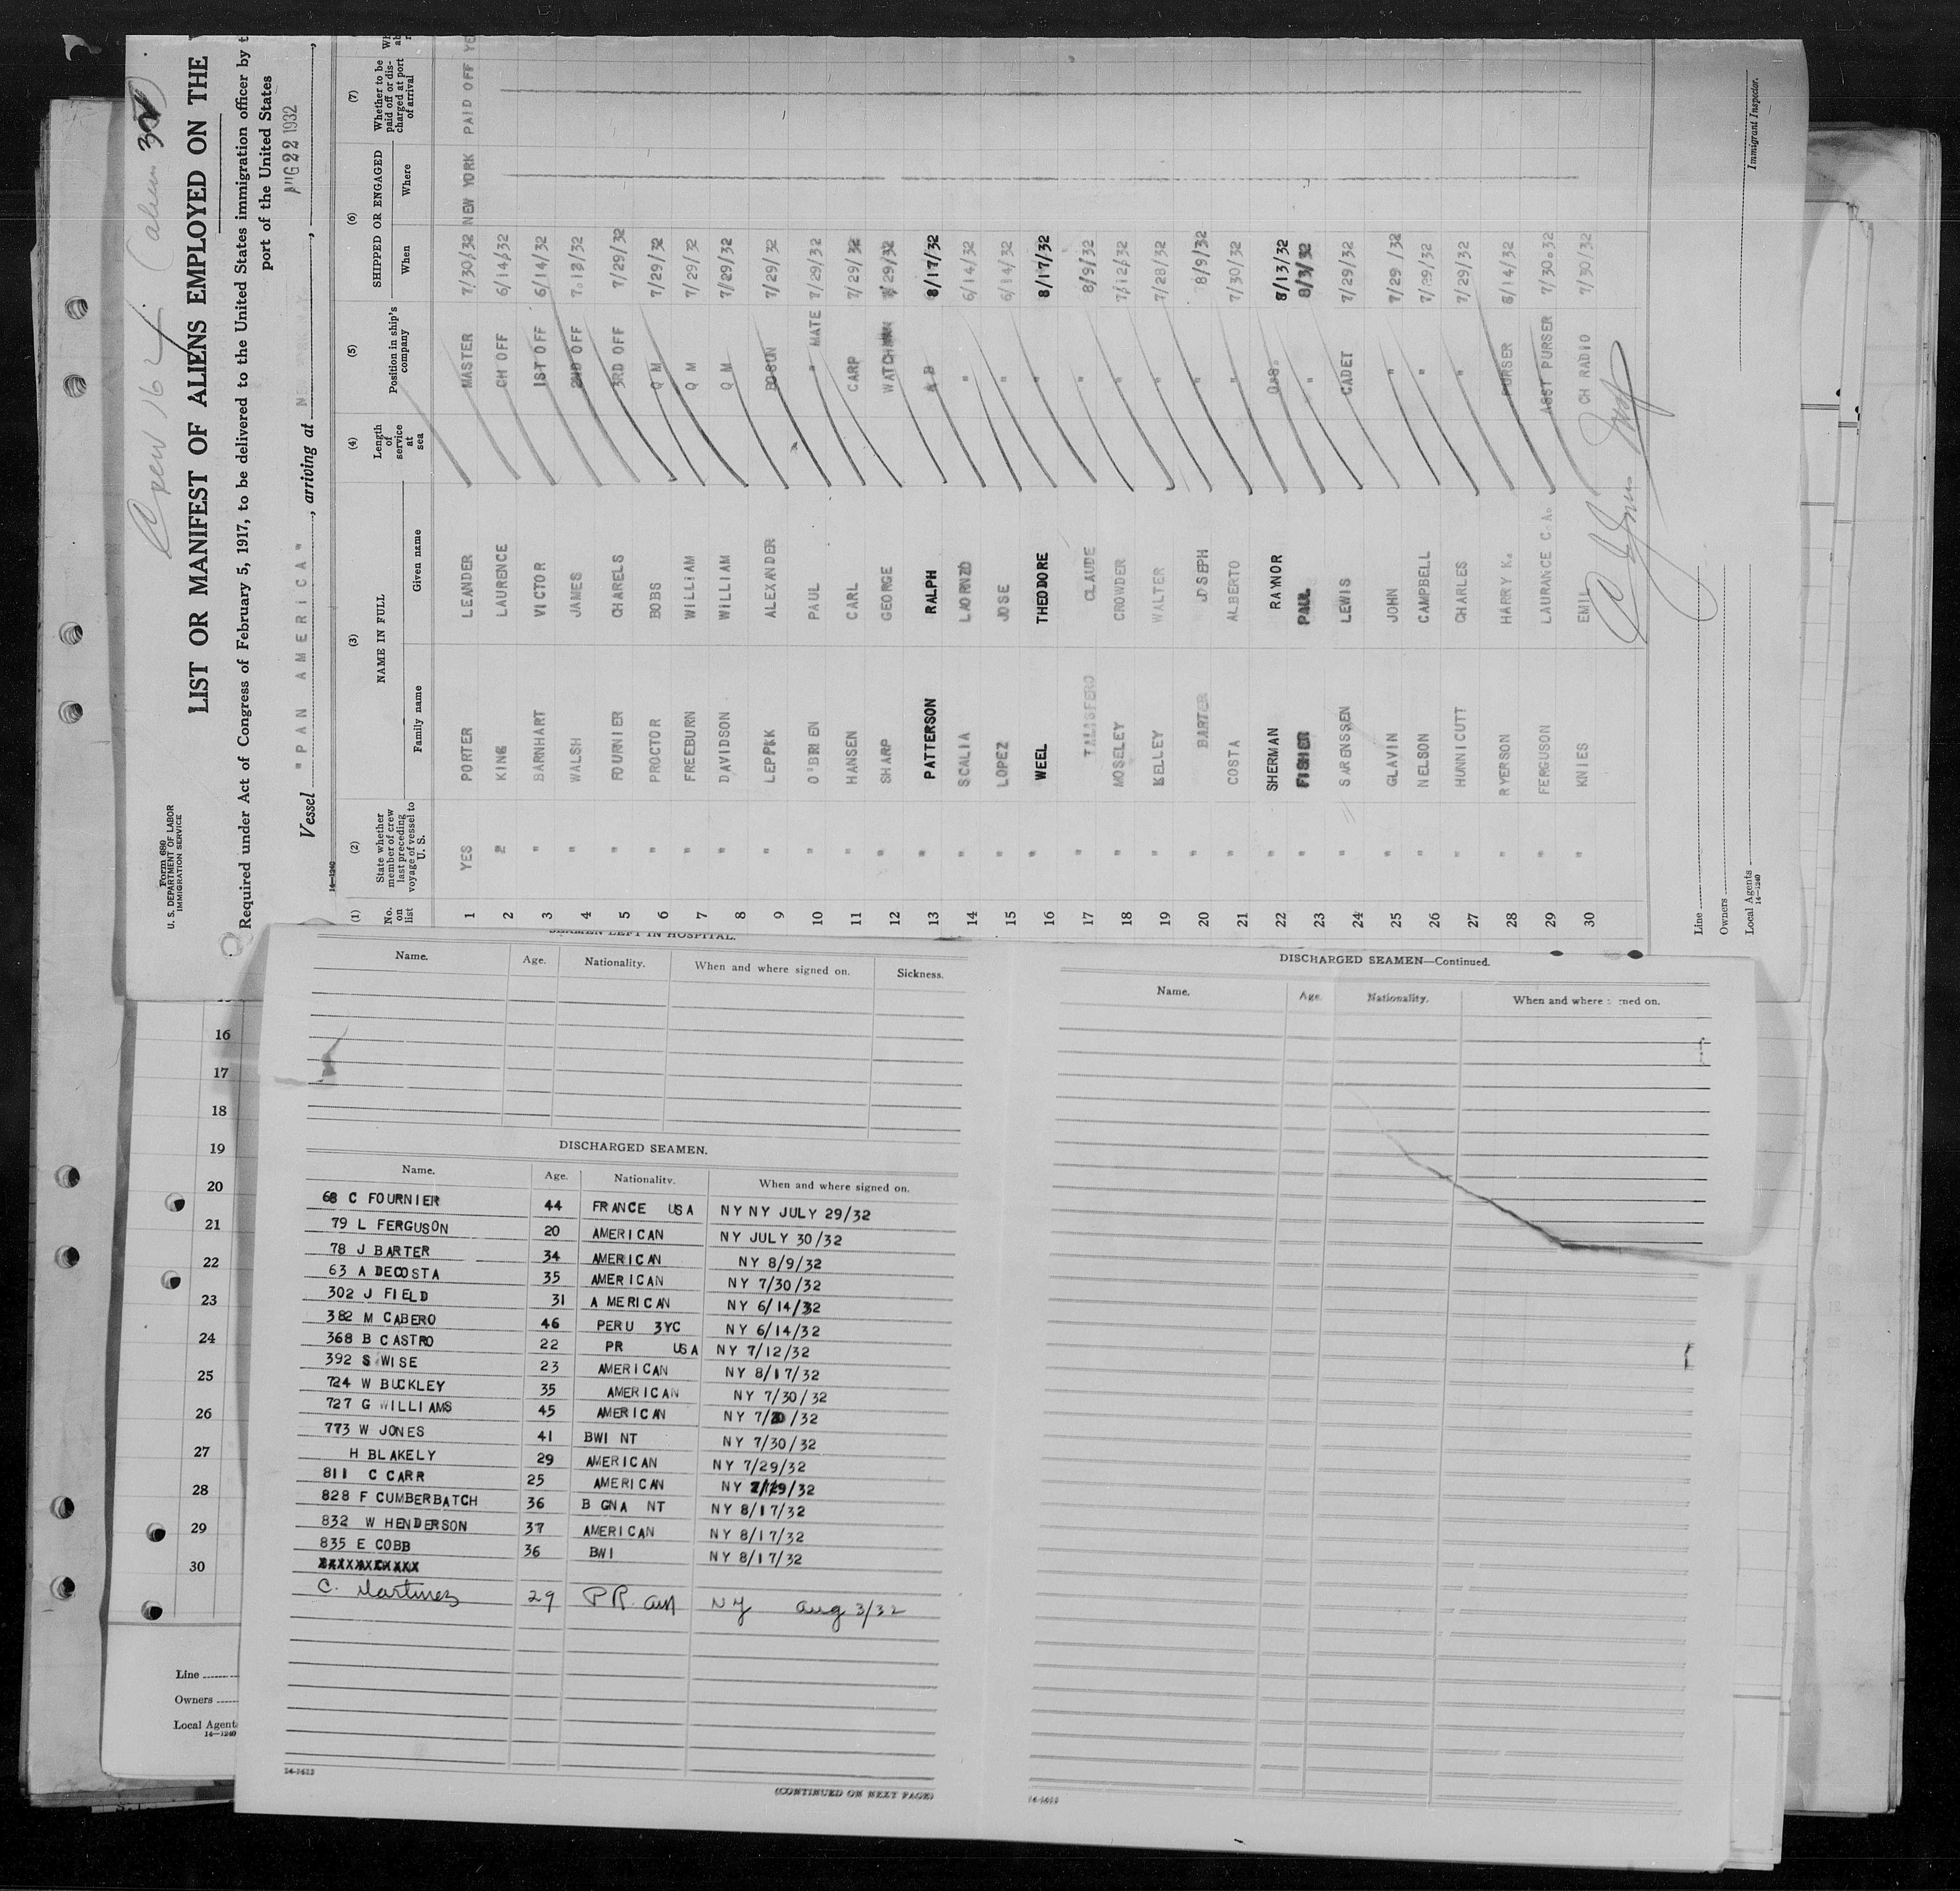 Crew 162
Form 680
U. S. DEPARTMENT OF LABOR
IMMIGRATION SERVICE
LIST OR MANIFEST OF ALIENS EMPLOYED ON THE
Required under Act of Congress of February 5, 1917, to be delivered to the United States immigration officer by t
port of the United States
Vessel "PAN AMERICA", arriving at
AUG 22 1932
14—1240
(1) (2) (3) (4) (5) (6) (7)
No. on list
State whether member of crew last preceding voyage of vessel to U. S.
NAME IN FULL
Family name Given name
Length of service at sea
Position in ship's company
SHIPPED OR ENGAGED
When Where
Whether to be paid off or discharged at port of arrival
1 YES PORTER LEANDER MASTER 7/30/32 NEW YORK PAID OFF YE
2 KING LAURENCE CH OFF 6/14/32
3 " BARNHART VICTOR 1ST OFF 6/14/32
4 " WALSH JAMES 2ND OFF 7.12/32
5 " FOURNIER CHARELS 3RD OFF 7/29/32
6 " PROCTOR BOBS Q M 7/29/32
7 " FREEBURN WILLIAM Q M 7/29/32
8 " DAVIDSON WILLIAM Q M 7/29/32
9 " ALEXANDER BOSUN 7/29/32
10 " O'BRIEN PAUL " MATE 7/29/32
11 " HANSEN CARL CARP 7/29/32
12 " SHARP GEORGE WATCHMAN 29/32
13 " PATTERSON RALPH A B 8/17/32
14 " SCALIA " 6/14/32
15 " LOPEZ JOSE " 6/14/32
16 " WEEL THEODORE " 8/17/32
17 " CLAUDE " 8/9/32
18 " MOSELEY CROWDER " 7/12/32
19 " KELLEY WALTER " 7/28/32
20 " BARTER JOSEPH " 8/9/32
21 " COSTA ALBERTO " 7/30/32
22 " SHERMAN RAYNOR O.S. 8/13/32
23 " FISHER PAUL " 8/3/32
24 " SARENSSEN LEWIS CADET 7/29/32
25 " GLAVIN JOHN " 7/29/32
26 " NELSON CAMPBELL " 7/29/32
27 " HUNNICUTT CHARLES " 7/29/32
28 " RYERSON HARRY K. PURSER 6/14/32
29 " FERGUSON LAURANCE C.A. ASST PURSER 7/30.32
30 " KNIES EMIL CH RADIO 7/30/32
Line
Owners
Local Agents
14—1240
Immigrant Inspector.
16
17
18
19
20
21
22
23
24
25
26
27
28
29
30
Line
Owners
Local Agents
14—1240
SEAMEN LEFT IN HOSPITAL.
Name. Age. Nationality. When and where signed on. Sickness.
DISCHARGED SEAMEN.
Name. Age. Nationality. When and where signed on.
68 C FOURNIER 44 FRANCE USA NY NY JULY 29/32
79 L FERGUSON 20 AMERICAN NY JULY 30/32
78 J BARTER 34 AMERICAN NY 8/9/32
63 A DECOSTA 35 AMERICAN NY 7/30/32
302 J FIELD 31 A MERICAN NY 6/14/32
382 M CABERO 46 PERU 3YC NY 6/14/32
368 B CASTRO 22 PR USA NY 7/12/32
392 S WISE 23 AMERICAN NY 8/17/32
724 W BUCKLEY 35 AMERICAN NY 7/30/32
727 G WILLIAMS 45 AMERICAN NY 7/ /32
773 W JONES 41 BWI NT NY 7/30/32
H BLAKELY 29 AMERICAN NY 7/29/32
811 C CARR 25 AMERICAN NY /32
828 F CUMBERBATCH 36 B GNA NT NY 8/17/32
832 W HENDERSON 37 AMERICAN NY 8/17/32
835 E COBB 36 BWI NY 8/17/32
C. Martinez 29 PR NY Aug 3/32
14-1413
(CONTINUED ON NEXT PAGE)
DISCHARGED SEAMEN—Continued.
Name. Age. Nationality. When and where signed on.